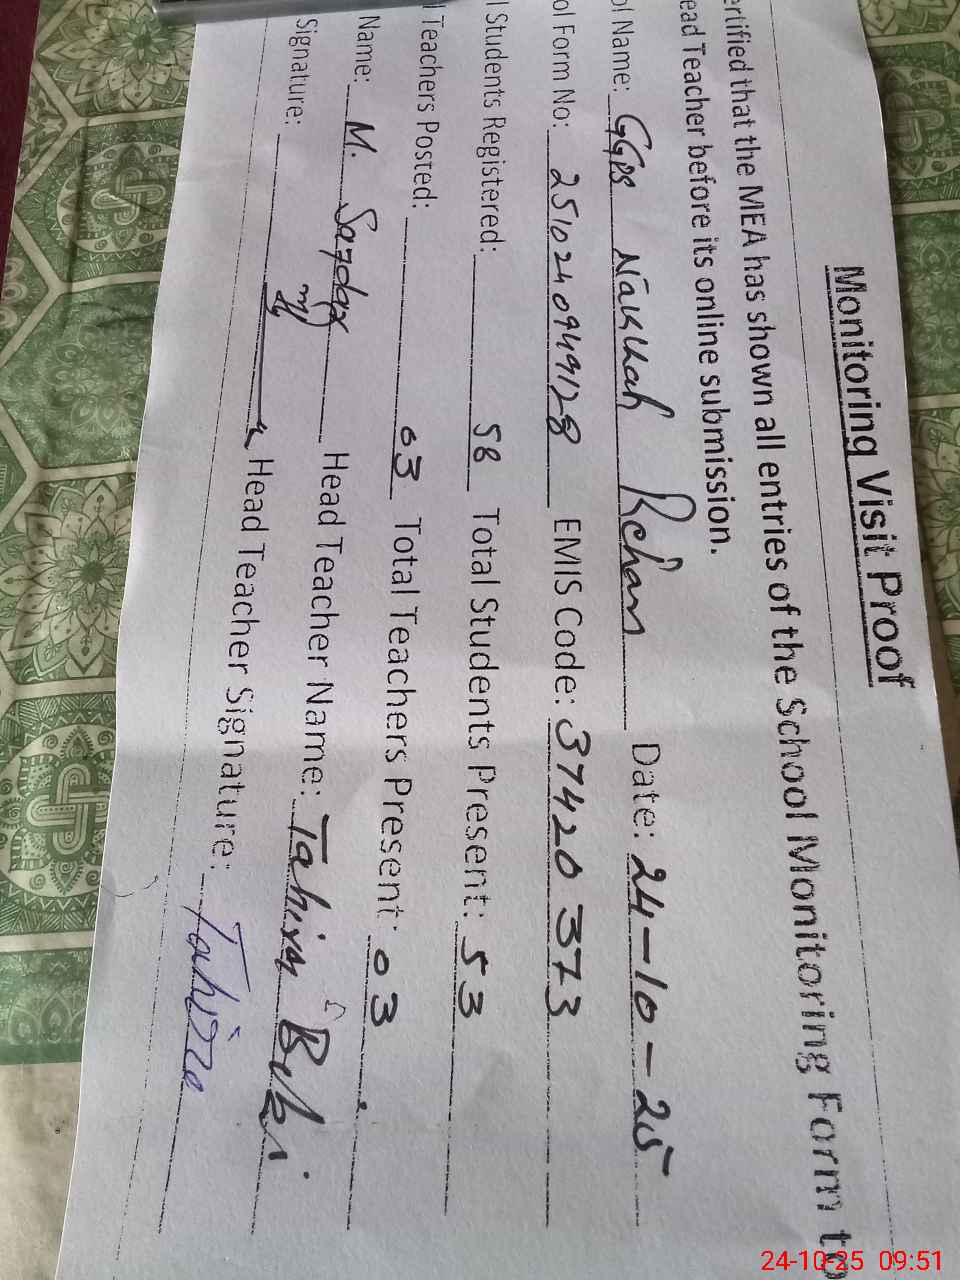 Monitoring Visit Proof
ertified that the MEA has shown all entries of the School Monitoring Form to
ead Teacher before its online submission.
ol Name: GGPS Nakkah Rehan Date: 24-10-25
ol Form No: 2510240949128 EMIS Code: 37420373
l Students Registered: 58 Total Students Present: 53
l Teachers Posted: 03 Total Teachers Present: 03
Name: M. Sardar Head Teacher Name: Tahira Bibi
Signature: Head Teacher Signature: Tahira
24-10-25 09:51